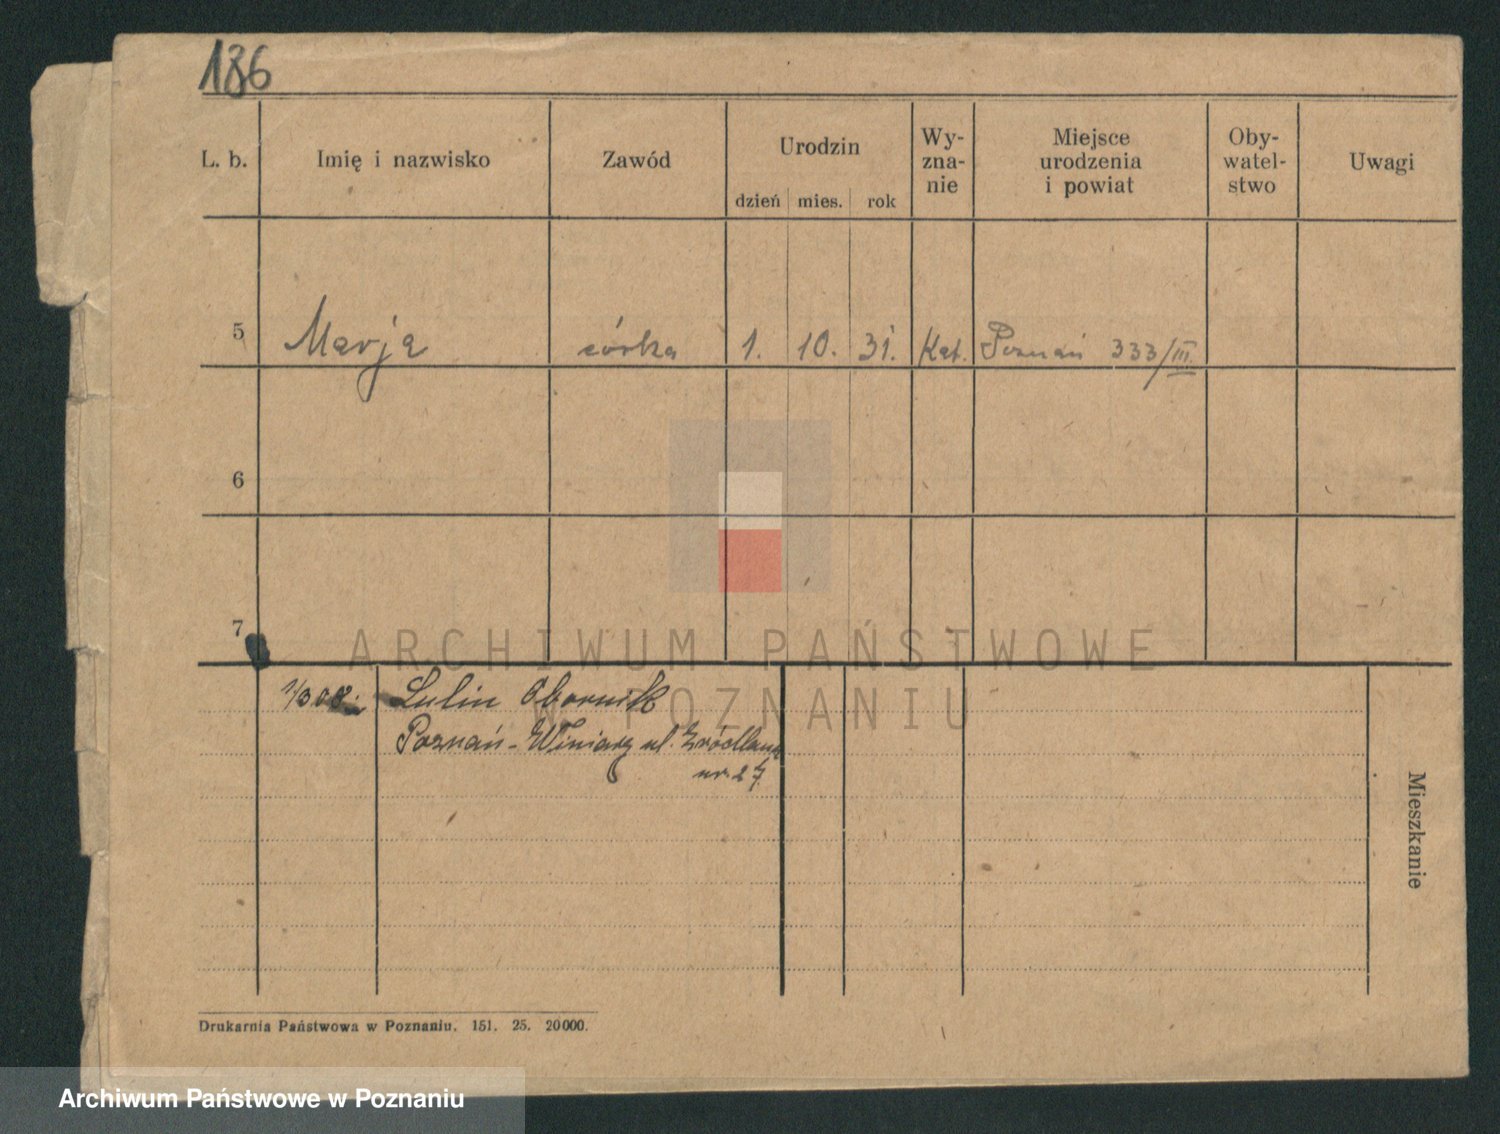 186
L. b. Imię i nazwisko Zawód Urodzin dzień mies. rok Wy-zna-nie Miejsce urodzenia i powiat Oby-watel-stwo Uwagi
5 Marja córka 1. 10. 31. Kat. Poznań 333/III.
6
7
ARCHIWUM PAŃSTWOWE
W POZNANIU
Lulin Obornik
Poznań - Winiary ul. Źródlana
nr. 27
Mieszkanie
Drukarnia Państwowa w Poznaniu. 151. 25. 20000.
Archiwum Państwowe w Poznaniu